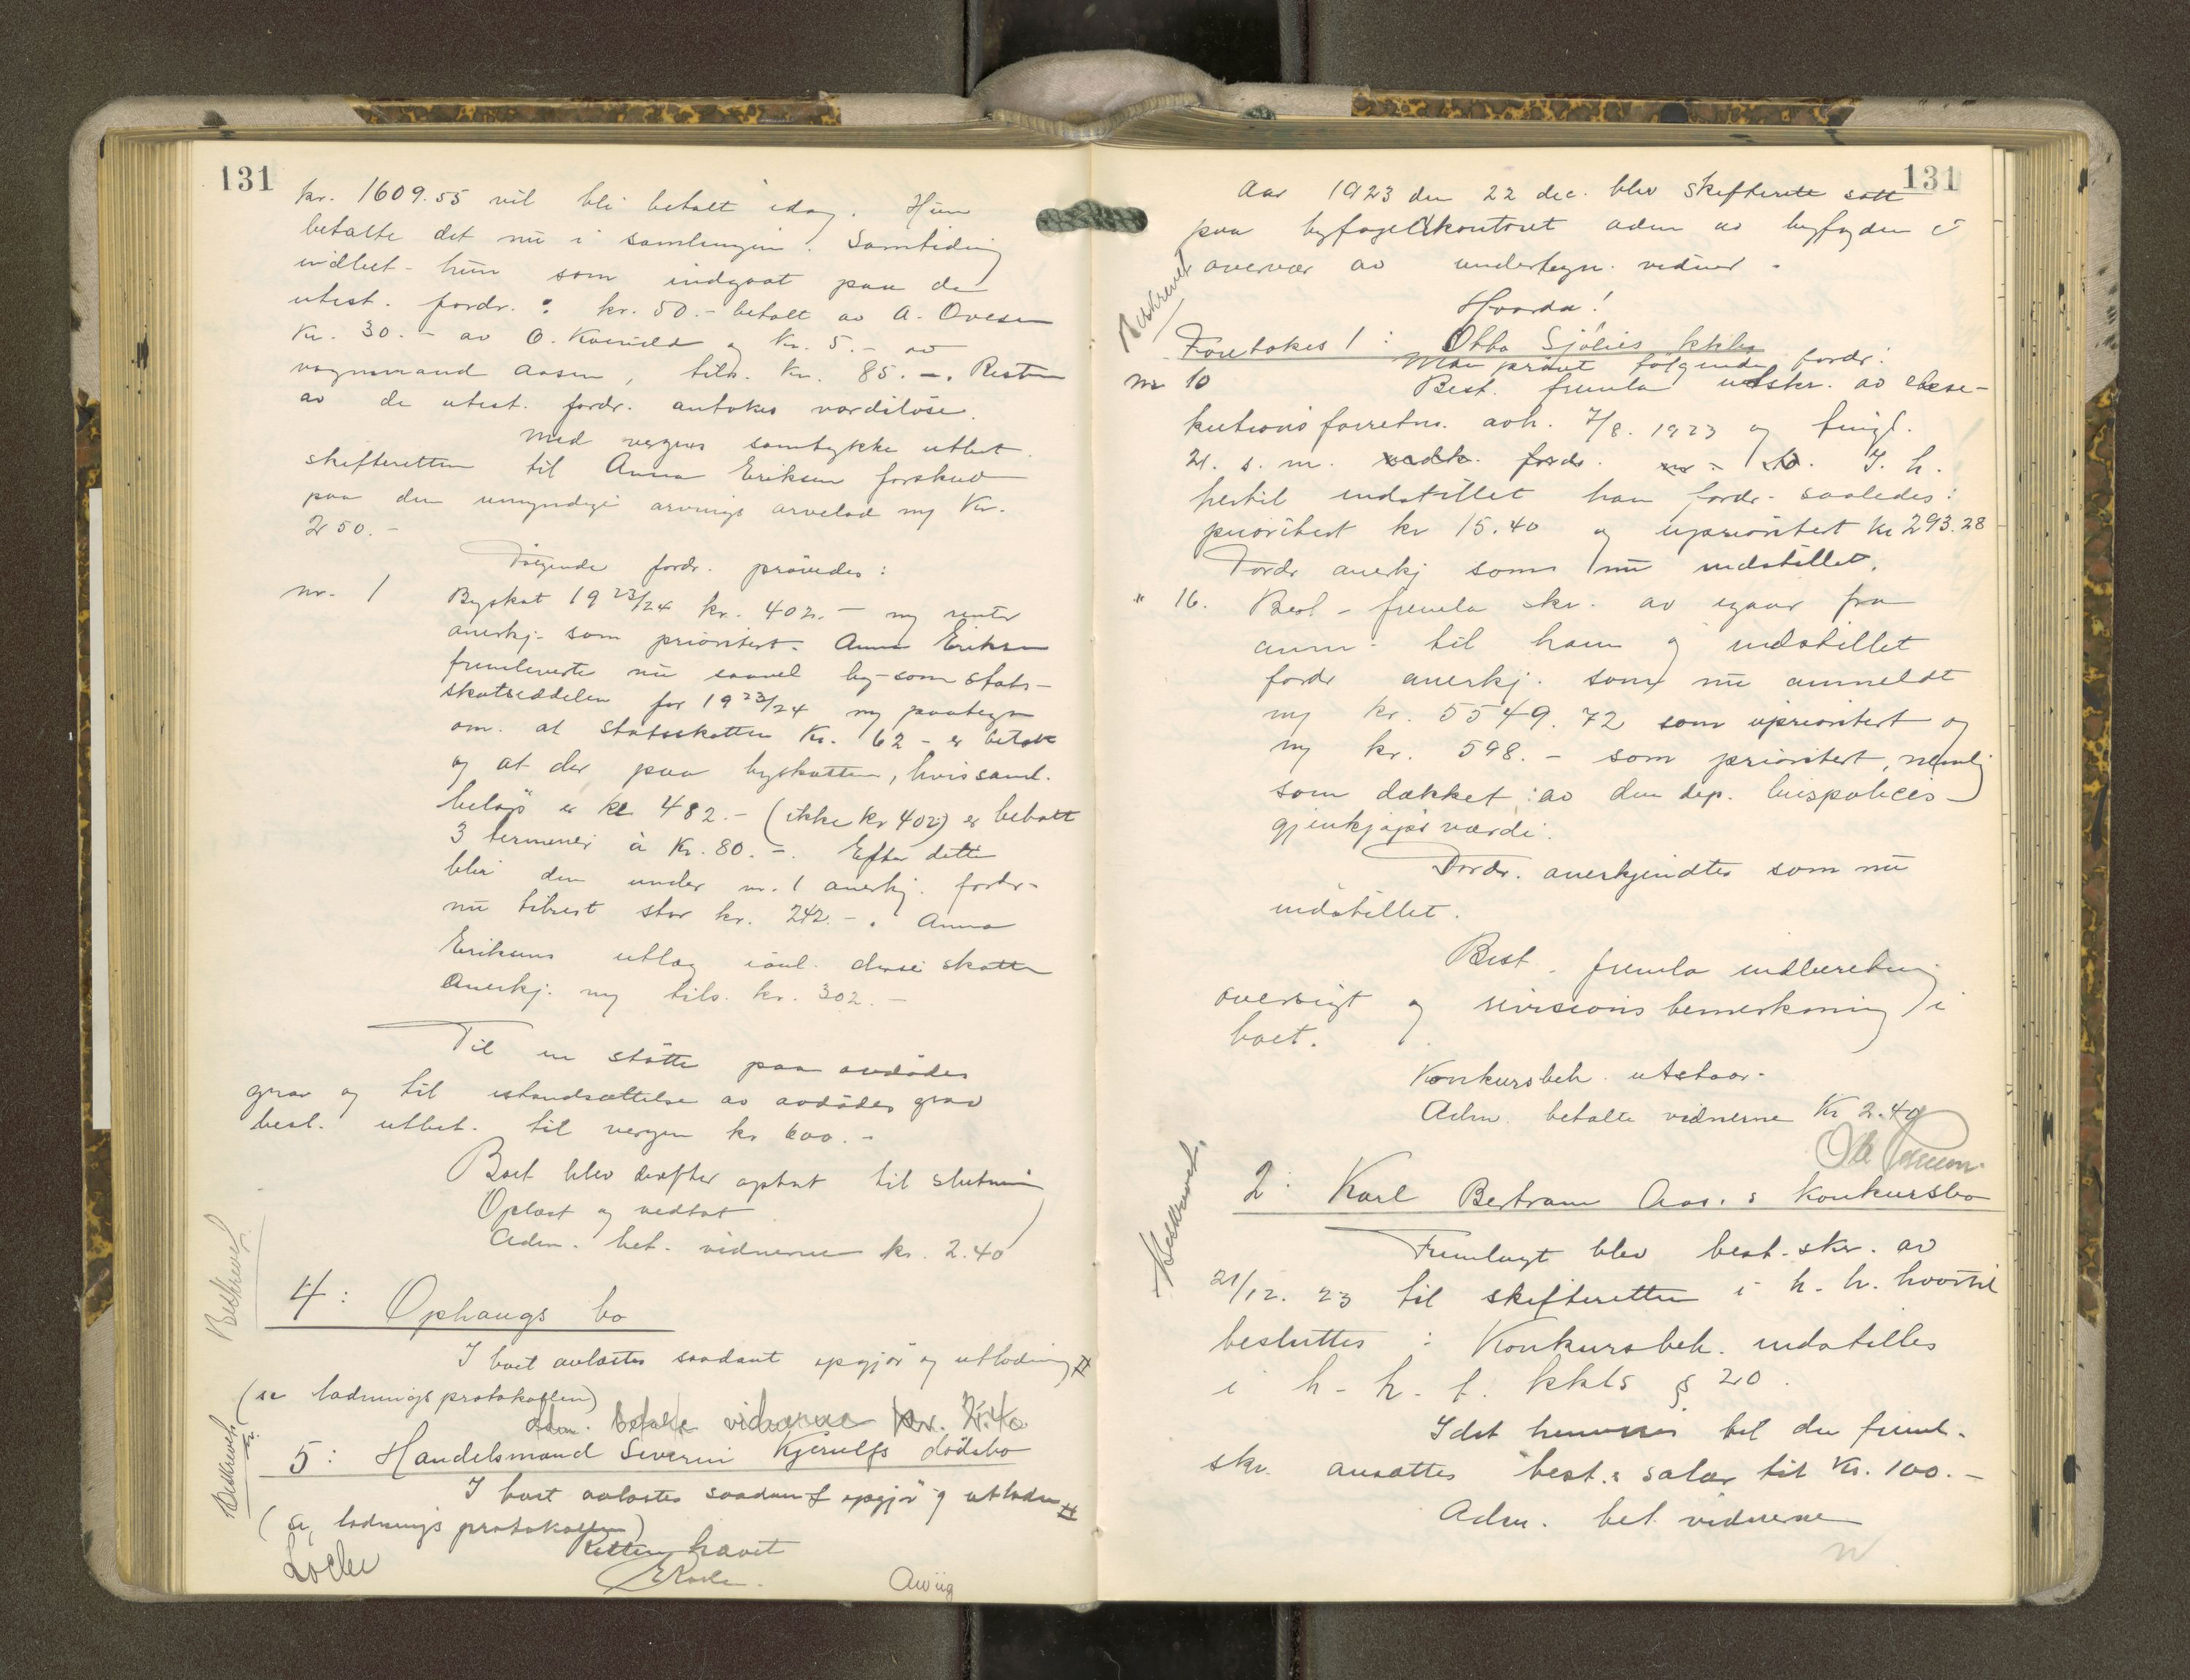 131
kr. 1609.55 vil bli betalt idag. Hun
betalte det nu i samlingen. Samtidig
indbet. hun som indgaat paa de
utest. fordr.: kr. 50.- betalt av A. Ovesen
Kr. 30.- av O. og Kr. 5.- av
vognmand Aasen, tils. Kr. 85.-. Resten
av de utest. fordr. antokes værdiløse.
Med verges samtykke utbet.
skifteretten til Anna Eriksen forskud
paa den umyndige arvings arvelod m/ Kr.
250.-
Følgende fordr. prøvedes:
nr. 1 Byskat 19 23/24 kr. 402.- m/ renter
anerkj. som prioritert. Anna Eriksen
fremleverte nu saavel by- som stats-
skatseddelen for 19 23/24 m/ paategn
om. at statsskatten Kr. 62 - er betalt
og at der paa byskatten, hvis saml.
beløp er kr 482.- (ikke kr 402) er betalt
3 terminer à Kr. 80.-. Efter dette
blir den under nr. 1 anerkj. fordr.
nu tilrest stor kr. 242.-. Anna
Eriksens utlæg i anl. disse skatter
Anerkj. m/ tils. kr. 302.-
Til en støtte paa avdødes
grav og til istandsættelse av avdødes grav
besl. utbet. til vergen kr 600.-
Boet blev derefter optat til slutning
Oplæst og vedtat
Adm. bet. vidnerne kr. 2.40
Beskrevet.
4: Ophaugs bo
I boet avlastes saadant opgjør og utlodning #
(se lodningsprotokollen)
Adm. betalte vidnerne Kr. 2.40
Beskrevet
5: Handelsmand Severin Kjerulfs dødsbo
I boet avlastes saadant opgjør og utlodn #
(se lodnings protokollen)
Retten hævet
131
Aar 1923 den 22 dec. blev skifterett satt
paa byfogedkontoret adm av byfogden i
overvær av undertegn. vidner.
Hvorda!
Beskrevet
Foretokes 1: Otto Sjølies kkbo
Man prøvet følgende fordr:
nr 10 Best. fremla utskr. av ekse-
kutionsforretn. avh. 7/8. 1923 og tingl.
21. s. m. vedk. fordr. nr. 10. I. h.
hertil indstillet han fordr. saaledes:
prioritert kr 15.40 og uprioritert kr 293.28
Fordr anerkj som nu indstillet.
" 16. Best. fremla skr. av igaar fra
anm. til ham og indstillet
fordr anerkj. som nu anmeldt
m/ kr. 5549.72 som uprioritert og
m/ kr. 598.- som prioritert, nemlig
som dækket av den dep. livspolices
gjenkjøpsværdi.
Fordr. anerkjendtes som nu
indstillet.
Best. fremla indberetning
oversigt og revisionsbemerkning i
boet.
Konkursbeh. utstaar.
Adm. betalte vidnerne Kr 2.40
Beskrevet.
2: Karl Bertram Aas.s konkursbo
Fremlagt blev best. skr. av
21/12. 23 til skifteretten i h. h. hvortil
besluttes: Konkursbeh. indstilles
i h. h. t. kkls § 20.
Idet henvises til den freml.
skr. ansattes best.s salær til Kr. 100.-
Adm. bet. vidnerne